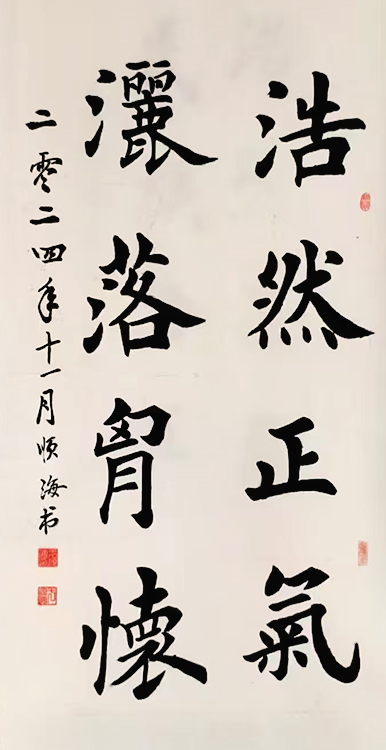 浩然正氣
灑落胷懷
二零二四年十一月順海书